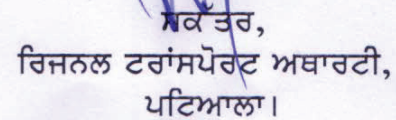 ਸਕੱਤਰ,
ਰਿਜਨਲ ਟਰਾਂਸਪੋਰਟ ਅਥਾਰਟੀ,
ਪਟਿਆਲਾ।